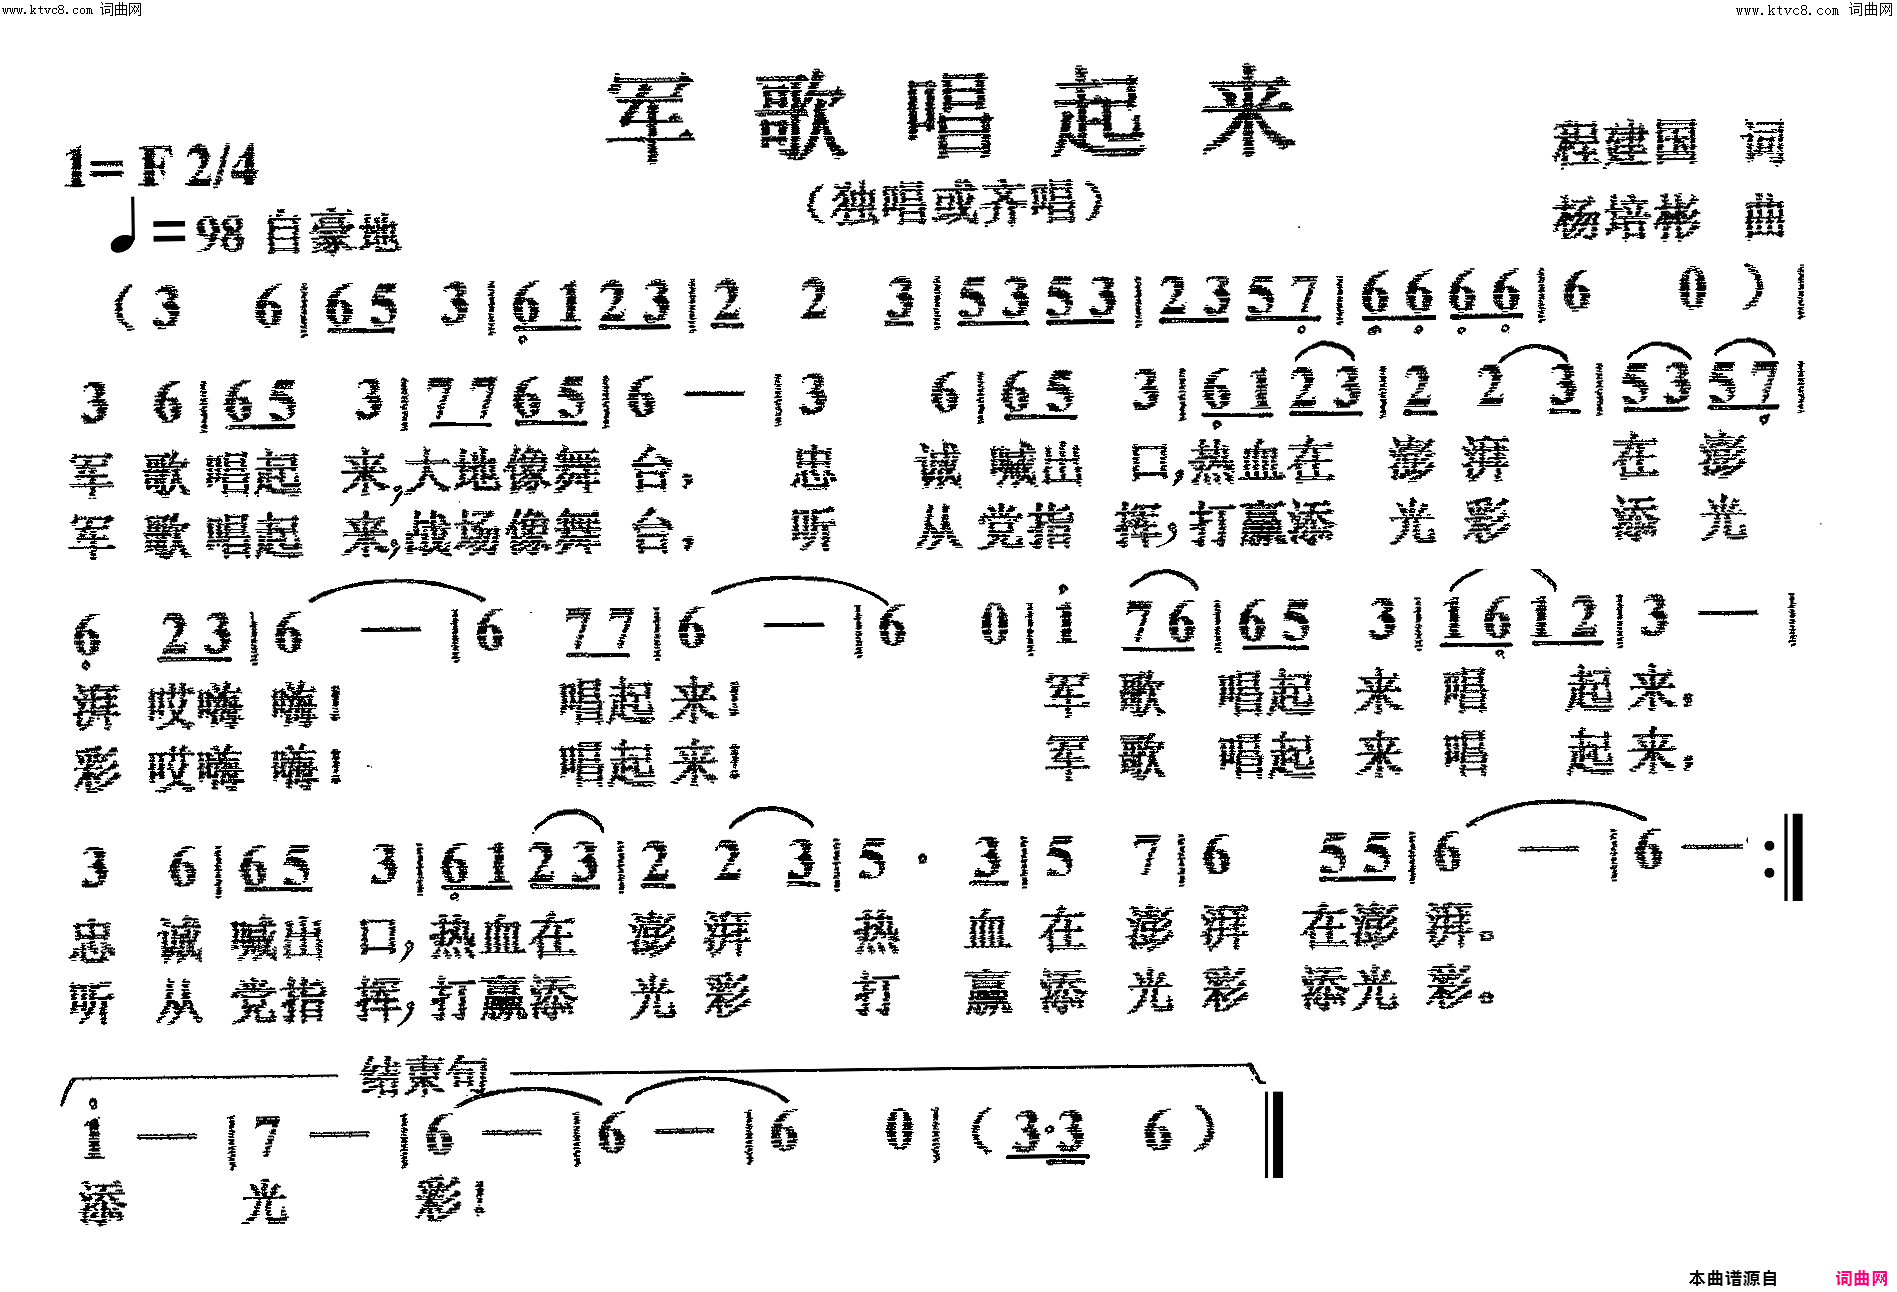 www.ktvc8.com 词曲网 www.ktvc8.com 词曲网
军歌唱起来
1= F 2/4 程建国 词
（独唱或齐唱）
♩= 98 自豪地 杨培彬 曲
（3 6 | 6 5 3 | 6̣ 1 2 3 | 2 2 3 | 5 3 5 3 | 2 3 5 7̣ | 6̣ 6̣ 6̣ 6̣ | 6 0 ） |
3 6 | 6 5 3 | 7 7 6 5 | 6 — | 3 6 | 6 5 3 | 6̣ 1 2 3 | 2 2 3 | 5 3 5 7̣ |
军 歌 唱起 来,大地像舞 台, 忠 诚 喊出 口,热血在 澎 湃 在 澎
军 歌 唱起 来,战场像舞 台, 听 从 党指 挥,打赢添 光 彩 添 光
6̣ 2 3 | 6 — | 6 7 7 | 6 — | 6 0 | 1̇ 7 6 | 6 5 3 | 1 6̣ 1 2 | 3 — |
湃 哎嗨 嗨! 唱起 来! 军 歌 唱起 来 唱 起 来,
彩 哎嗨 嗨! 唱起 来! 军 歌 唱起 来 唱 起 来,
3 6 | 6 5 3 | 6̣ 1 2 3 | 2 2 3 | 5 · 3 | 5 7 | 6 5 5 | 6 — | 6 — :‖
忠 诚 喊出 口,热血在 澎 湃 热 血 在 澎 湃 在澎 湃。
听 从 党指 挥,打赢添 光 彩 打 赢 添 光 彩 添光 彩。
结束句
1̇ — | 7 — | 6 — | 6 — | 6 0 | （ 3·3 6 ） ‖
添 光 彩!
本曲谱源自 词曲网